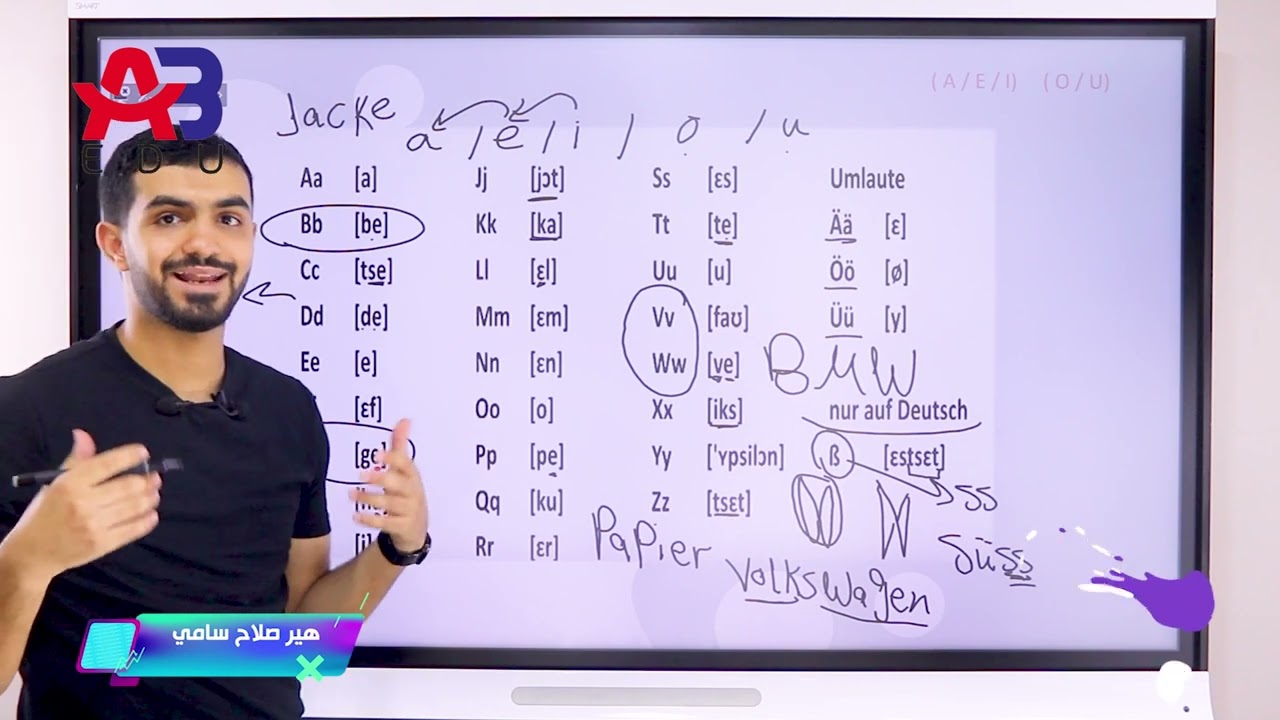 SMART
AB
EDU
(A/E/I) (O/U)
Jacke
a / e / i / o / u
Aa [a] Jj [jɔt] Ss [ɛs] Umlaute
Bb [be] Kk [ka] Tt [te] Ää [ɛ]
Cc [tse] Ll [ɛl] Uu [u] Öö [ø]
Dd [de] Mm [ɛm] Vv [faʊ] Üü [y]
Ee [e] Nn [ɛn] Ww [ve] BMW
[ɛf] Oo [o] Xx [iks] nur auf Deutsch
[ge] Pp [pe] Yy ['ʏpsilɔn] ß [ɛstsɛt]
Qq [ku] Zz [tsɛt] ss
[i] Rr [ɛr] Papier W süss
Volkswagen
هير صلاح سامي